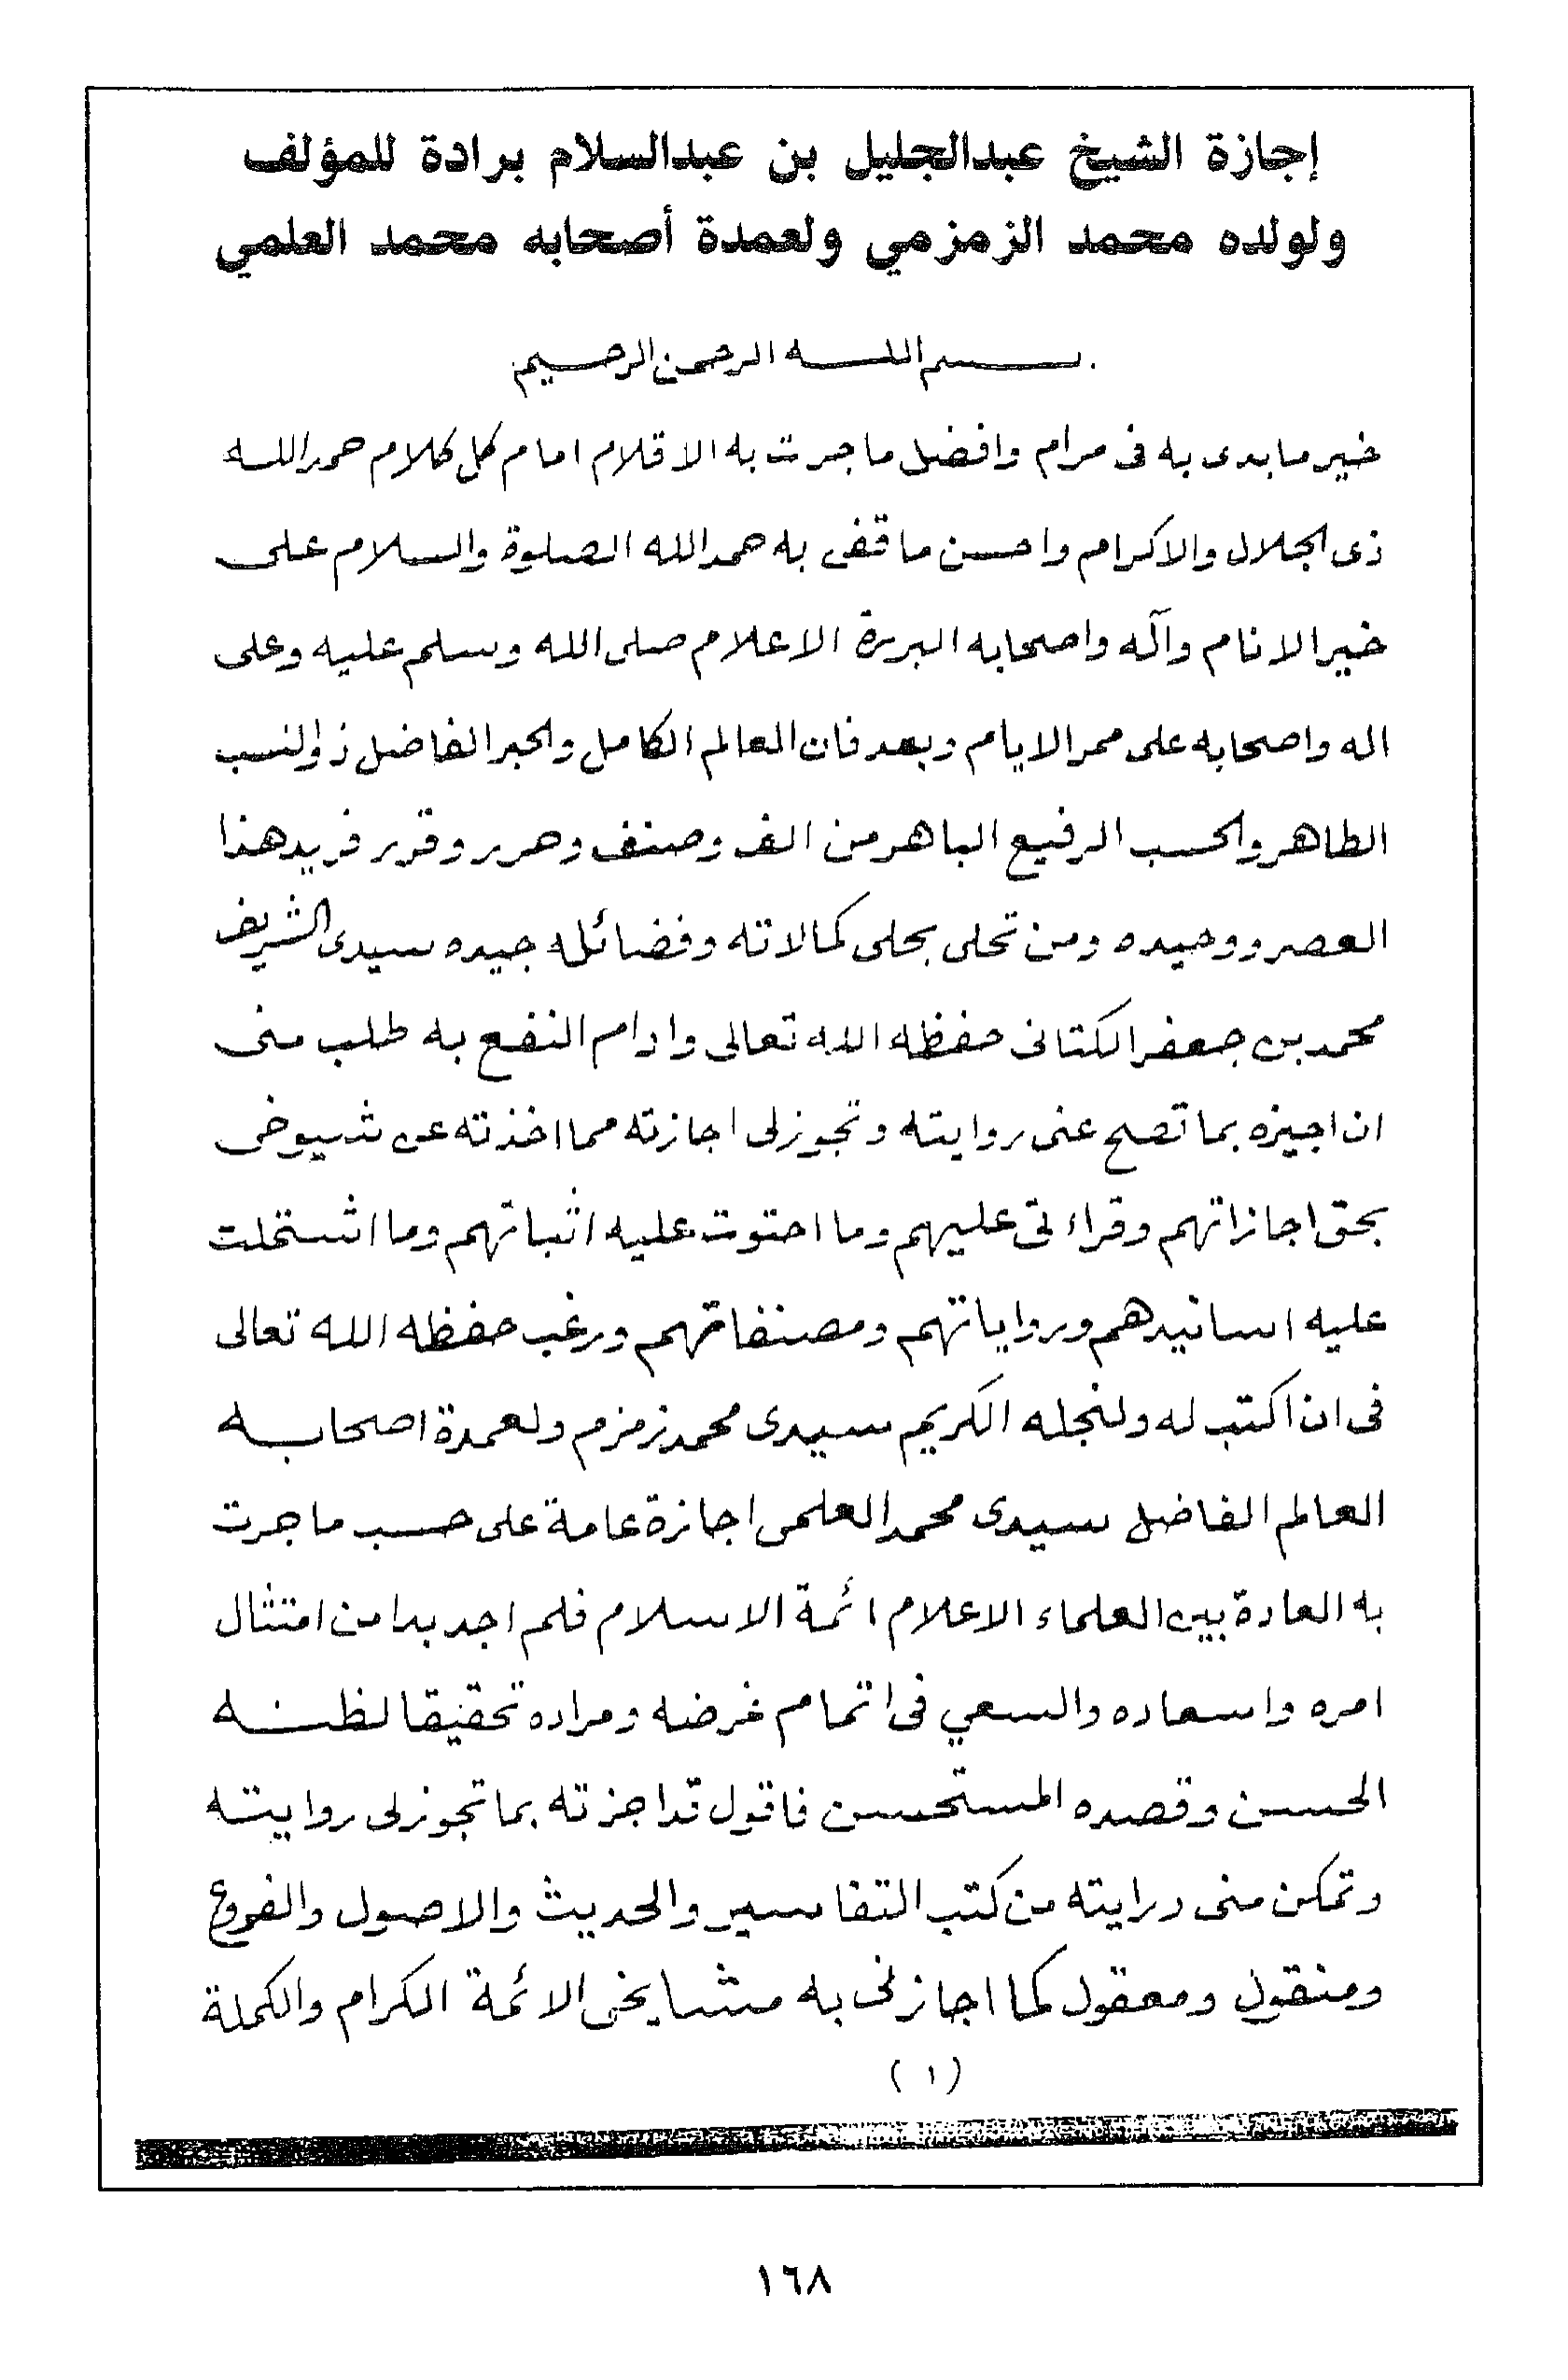 إجازة الشيخ عبدالجليل بن عبدالسلام برادة للمؤلف
ولولده محمد الزمزمي ولعمدة أصحابه محمد العلمي
بسم اللـه الرحمن الرحيم
خير ما بدى به فى مرام وافضل ما جرت به الاقلام امام كل كلام حمد اللـه
ذى الجلال والاكرام واحسن ما قفى به حمد الله الصلوة والسلام على
خير الانام وآله واصحابه البررة الاعلام صلى الله وسلم عليه وعلى
اله واصحابه على ممر الايام وبعد فان العالم الكامل والحبر الفاضل ذو النسب
الطاهر والحسب الرفيع الباهر من الف وصنف وحرر وقرر فريد هذا
العصر ووحيده ومن تحلى بحلى كمالاته وفضائله جيده سيدى الشريف
محمد بن جعفر الكتانى حفظه الله تعالى وادام النفع به طلب منى
ان اجيزه بما تصح عنى روايته وتجوز لى اجازته مما اخذته عن شيوخى
بحق اجازاتهم وقراءتى عليهم وما احتوت عليه اثباتهم وما اشتملت
عليه اسانيدهم ورواياتهم ومصنفاتهم ورغب حفظه الله تعالى
فى ان اكتب له ولنجله الكريم سيدى محمد زمزم ولعمدة اصحابـه
العالم الفاضل سيدى محمد العلمى اجازة عامة على حسب ما جرت
به العادة بين العلماء الاعلام ائمة الاسلام فلم اجد بدا من امتثال
امره واسعاده والسعي فى اتمام غرضه ومراده تحقيقا لظنـه
الحسن وقصده المستحسن فاقول قد اجزته بما تجوز لى روايتـه
وتمكن منى درايته من كتب التفاسير والحديث والاصول والفروع
ومنقول ومعقول كما اجازنى به مشايخى الائمة الكرام والكملة
(١)
١٦٨